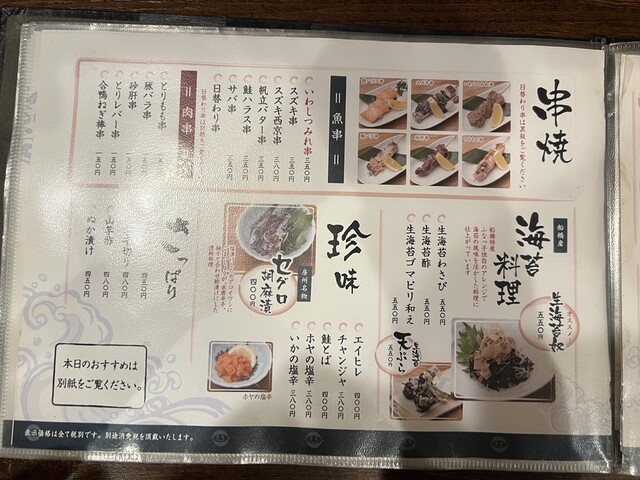 串焼
日替わり串は黒板をご覧ください
＝魚串＝
いわしつみれ串 三五〇円
スズキ串 三五〇円
スズキ西京串 三五〇円
帆立バター串 三五〇円
鮭ハラス串 三五〇円
サバ串 三五〇円
日替わり串
＝肉串＝
とりもも串
豚バラ串
砂肝串
とりレバー串 一五〇円
合鴨ねぎ棒串
船橋産
海苔料理
船橋特産
ふなっ子独自のアレンジで
海苔の風味を活かした料理に
仕上がっています
オススメ
五五〇円
生海苔わさび 五五〇円
生海苔酢 五五〇円
生海苔ゴマピリ和え 五五〇円
生海苔
天ぷら
五五〇円
珍味
房州名物
セグロ
胡麻漬
四〇〇円
エイヒレ 四〇〇円
チャンジャ 三八〇円
鮭とば 四〇〇円
ホヤの塩辛 三八〇円
いかの塩辛 三八〇円
ホヤの塩辛
さっぱり
山芋酢 四八〇円
ぬか漬け 四五〇円
本日のおすすめは
別紙をご覧ください。
表示価格は全て税別です。別途消費税を頂戴いたします。